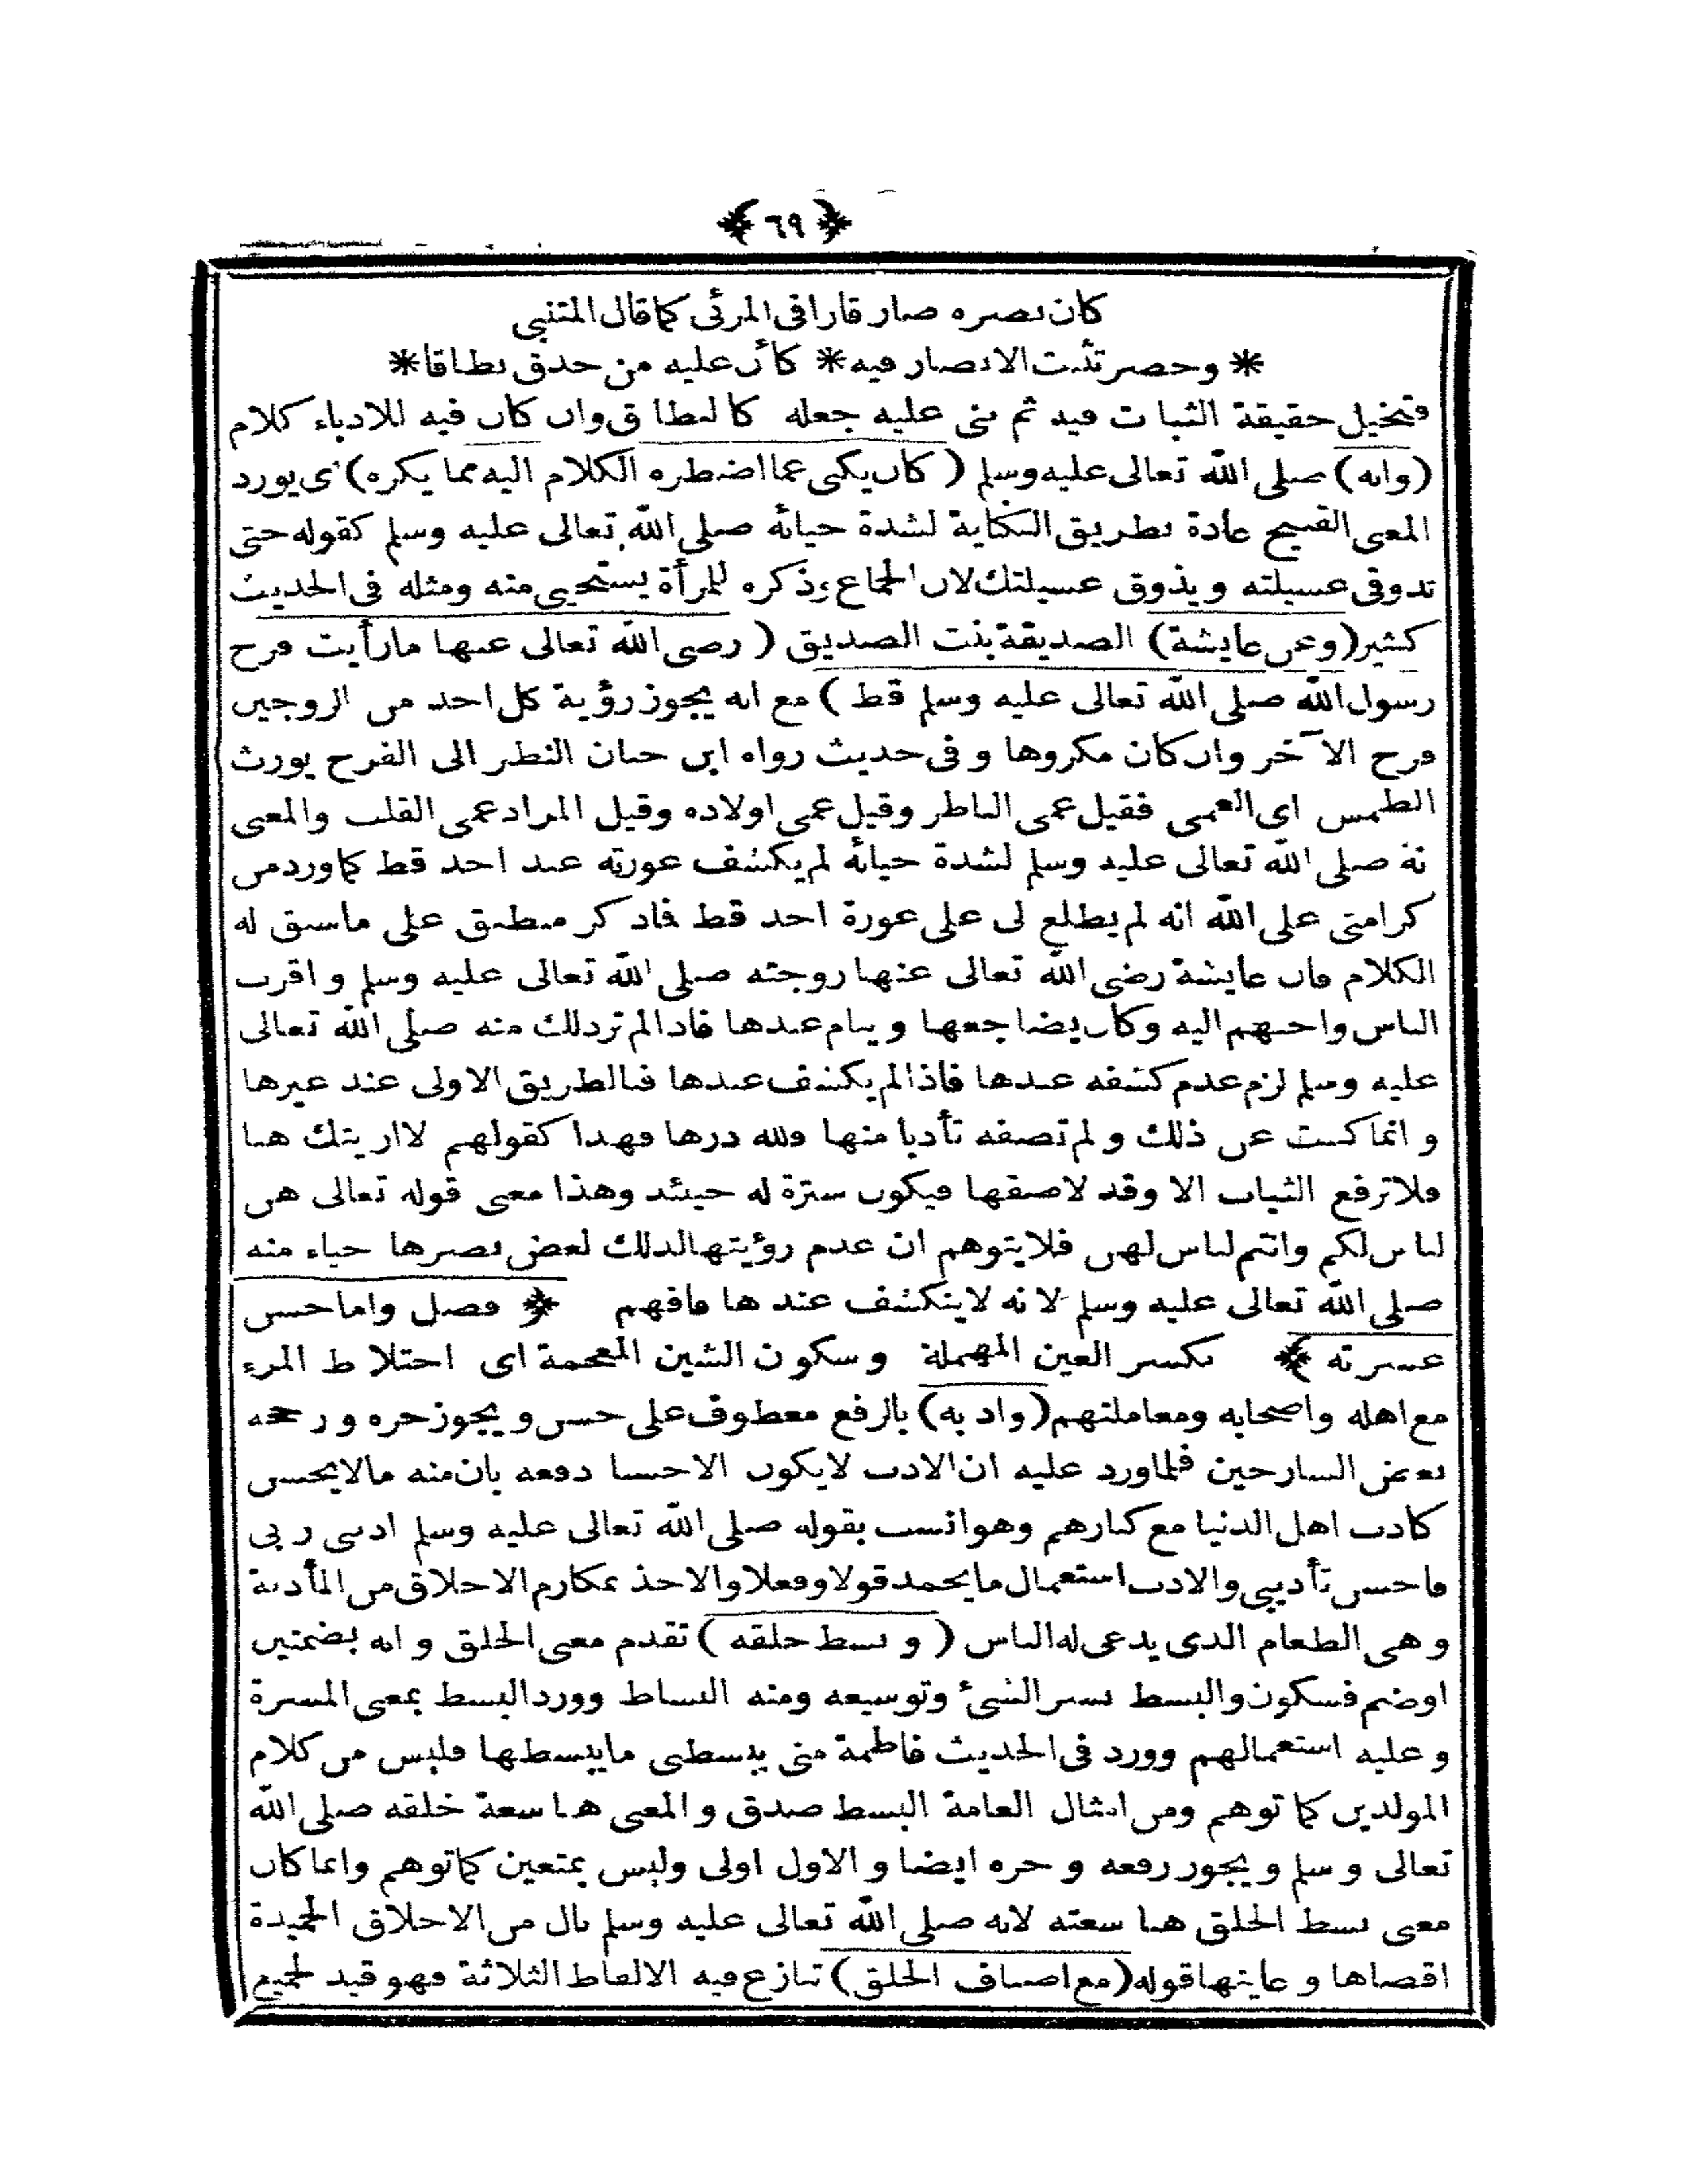 ﴿ ٦٩ ﴾
كان بصره صار قارا فى المرئى كما قال المتنبى
* وخصر تثبت الابصار فيه * كأن عليه من حدق نطاقا *
فتخيل حقيقة الثبات فيه ثم بنى عليه جعله كالنطاق وان كان فيه للادباء كلام
(وانه) صلى الله تعالى عليه وسلم (كان يكنى عما اضطره الكلام اليه مما يكره) اى يورد
المعنى القبيح عادة بطريق الكناية لشدة حيائه صلى الله تعالى عليه وسلم كقوله حتى
تذوقى عسيلته ويذوق عسيلتك لان الجماع ذكره للمرأة يستحيى منه ومثله فى الحديث
كثير (وعن عايشة) الصديقة بنت الصديق (رضى الله تعالى عنها مارأيت فرج
رسول الله صلى الله تعالى عليه وسلم قط) مع انه يجوز رؤية كل احد من الزوجين
فرج الآخر وان كان مكروها وفى حديث رواه ابن حبان النظر الى الفرج يورث
الطمس اى العمى فقيل عمى الناظر وقيل عمى اولاده وقيل المراد عمى القلب والمعنى
نه صلى الله تعالى عليه وسلم لشدة حيائه لم يكشف عورته عند احد قط كما ورد من
كرامتى على الله انه لم يطلع لى على عورة احد قط فاذكر منطبق على ماسبق له
الكلام فان عايشة رضى الله تعالى عنها زوجته صلى الله تعالى عليه وسلم واقرب
الناس واحبهم اليه وكان يضاجعها وينام عندها فاذا لم تر ذلك منه صلى الله تعالى
عليه وسلم لزم عدم كشفه عندها فاذا لم يكشف عندها فبالطريق الاولى عند غيرها
وانما كنت عن ذلك ولم تصفه تأدبا منها ولله درها فهذا كقولهم لا اريتك هنا
فلا ترفع الثياب الا وقد لاصقها فيكون سترة له حينئد وهذا معنى قوله تعالى هن
لباس لكم وانتم لباس لهن فلا يتوهم ان عدم رؤيتها لذلك لغض بصرها حياء منه
صلى الله تعالى عليه وسلم لانه لا ينكشف عندها فافهم ﴿ فصل واما حسن
عشرته ﴾ بكسر العين المهملة وسكون الشين المعجمة اى اختلاط المرء
مع اهله واصحابه ومعاملتهم (وادبه) بالرفع معطوف على حسن ويجوز جره ورجحه
بعض الشارحين فلما ورد عليه ان الادب لا يكون الا حسنا دفعه بان منه مالا يحسن
كادب اهل الدنيا مع كبارهم وهو انسب بقوله صلى الله تعالى عليه وسلم ادبنى ربى
فاحسن تأديبى والادب استعمال ما يحمد قولا وفعلا والاخذ بمكارم الاخلاق من المأدبة
وهى الطعام الذى يدعى له الناس (وبسط خلقه) تقدم معنى الخلق وانه بضمتين
اوضم فسكون والبسط نشر الشئ وتوسيعه ومنه البساط وورد البسط بمعنى المسرة
وعليه استعمالهم وورد فى الحديث فاطمة منى يبسطنى ما يبسطها فليس من كلام
المولدين كما توهم ومن امثال العامة البسط صدق والمعنى هنا سعة خلقه صلى الله
تعالى وسلم ويجوز رفعه وجره ايضا والاول اولى وليس بمتعين كما توهم وانما كان
معنى بسط الخلق هنا سعته لانه صلى الله تعالى عليه وسلم نال من الاخلاق الحميدة
اقصاها وغايتها قوله (مع اصناف الخلق) تنازع فيه الالفاظ الثلاثة فهو قيد لجميع